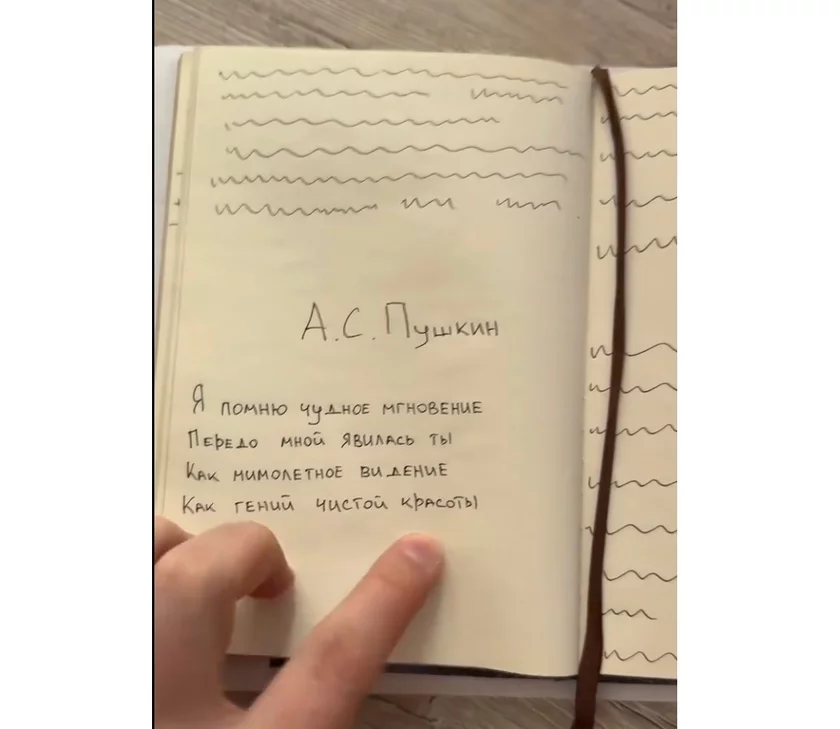 А.С.Пушкин
Я помню чудное мгновение
Передо мной явилась ты
Как мимолетное видение
Как гений чистой красоты